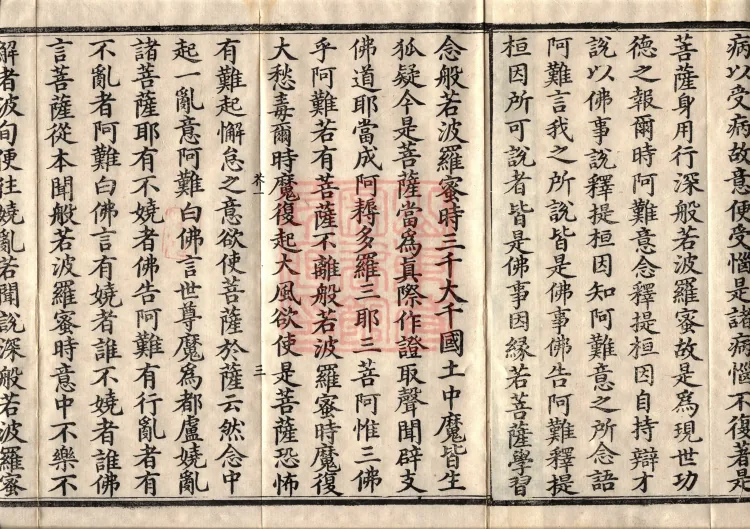 病以受病故意便受惱是諸病惱不復著是
菩薩身用行深般若波羅蜜故是為現世功
德之報爾時阿難意念釋提桓因自持辯才
說以佛事說釋提桓因知阿難意之所念語
阿難言我之所說皆是佛事佛告阿難釋提
桓因所可說者皆是佛事因緣若菩薩學習
念般若波羅蜜時三千大千國土中魔皆生
狐疑今是菩薩當為真際作證取聲聞辟支
佛道耶當成阿耨多羅三耶三菩阿惟三佛
乎阿難若有菩薩不離般若波羅蜜時魔復
大愁毒爾時魔復起大風欲使是菩薩恐怖
芥一
三
有難起懈怠之意欲使菩薩於薩云然念中
起一亂意阿難白佛言世尊魔為都盧嬈亂
諸菩薩耶有不嬈者佛告阿難有行亂者有
不亂者阿難白佛言有嬈者誰不嬈者誰佛
言菩薩從本聞般若波羅蜜時意中不樂不
解者波旬便往嬈亂若聞說深般若波羅蜜